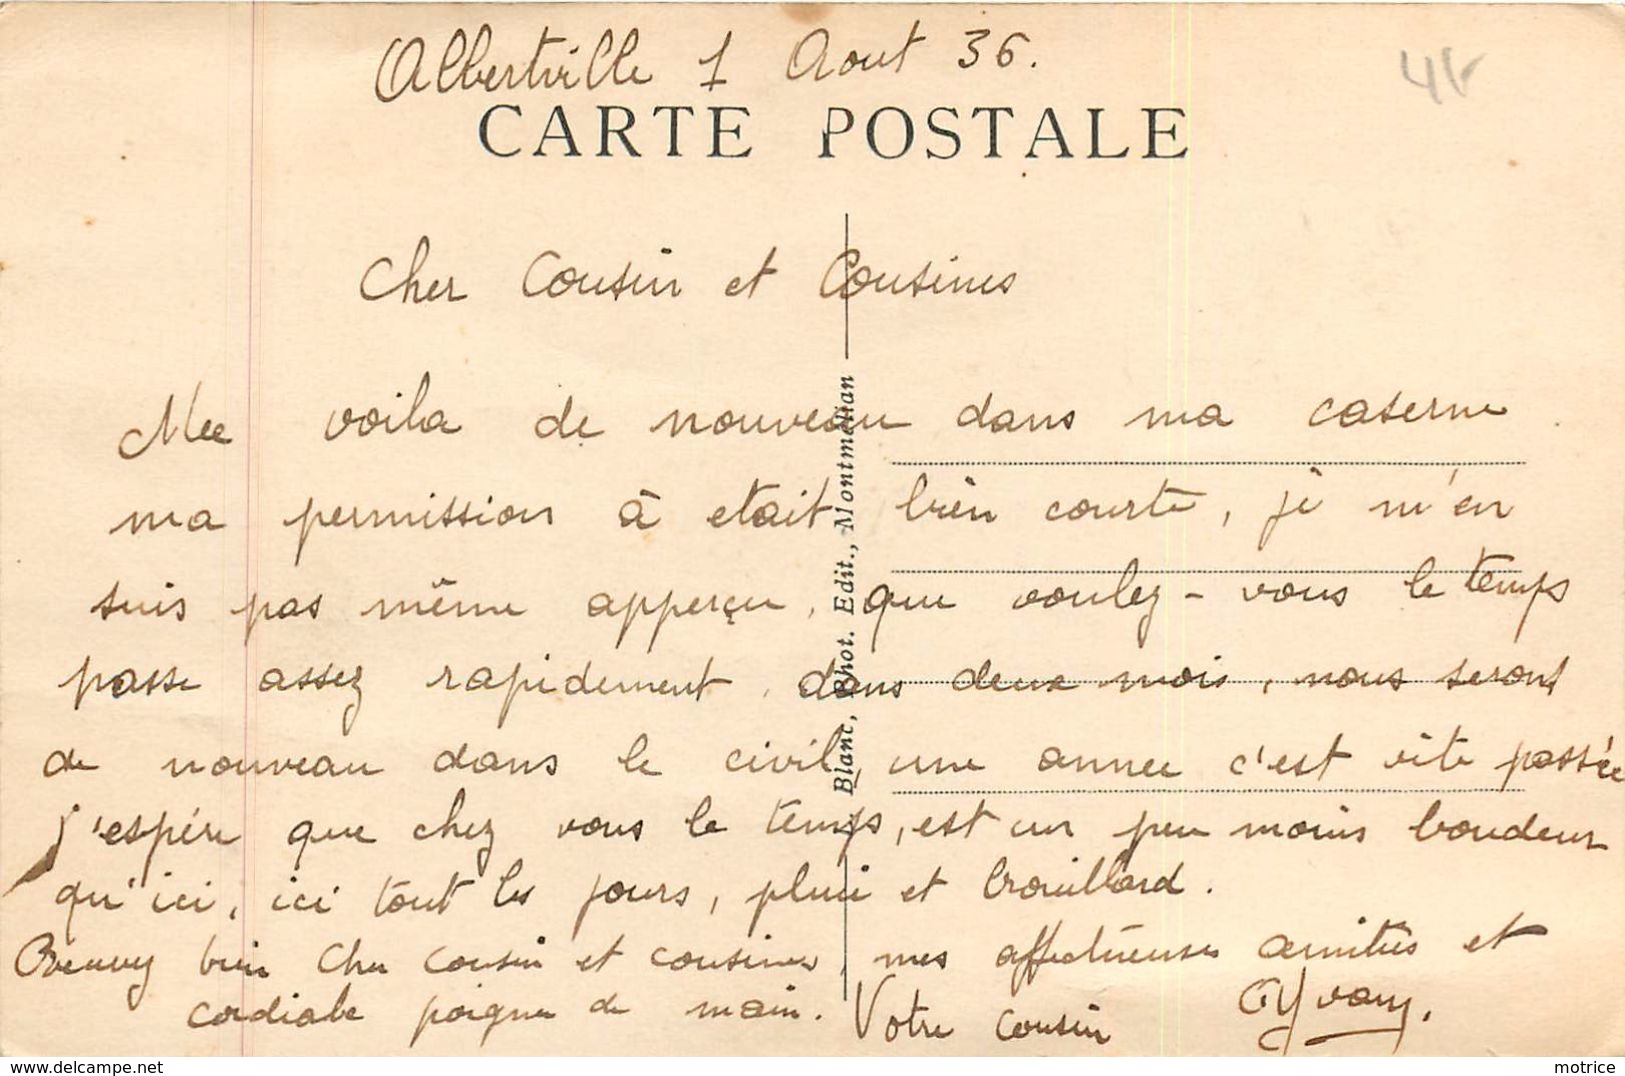 Albertville 1 Aout 36.
4€
CARTE POSTALE
Cher Cousin et Cousines
Me voila de nouveau dans ma caserne
ma permission à etait bien courte, je m'en
suis pas même apperçu, que voulez-vous le temps
passe assez rapidement, dans deux mois, nous seront
de nouveau dans le civil, une annee c'est vite passée
j'espére que chez vous le temps, est un peu moins boudeur
qu'ici, ici tout les jours, pluie et brouillard.
Recevez bien Cher cousin et cousines, mes affectueuses amitiés et
cordiale poignee de main. Votre cousin Yvan.
Blanc, Phot. Edit., Montmélian
www.delcampe.net
motrice